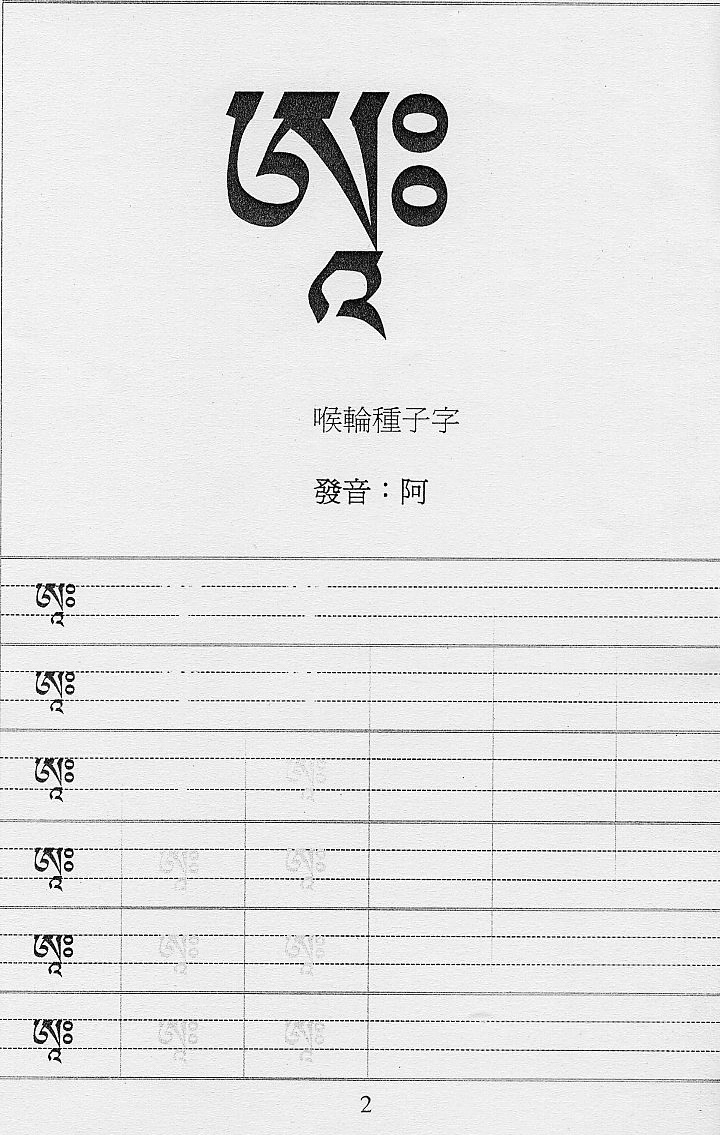 ཨཱཿ
喉輪種子字
發音：阿
ཨཱཿ
ཨཱཿ
ཨཱཿ ཨཱཿ
ཨཱཿ ཨཱཿ ཨཱཿ
ཨཱཿ ཨཱཿ ཨཱཿ
ཨཱཿ ཨཱཿ ཨཱཿ
2